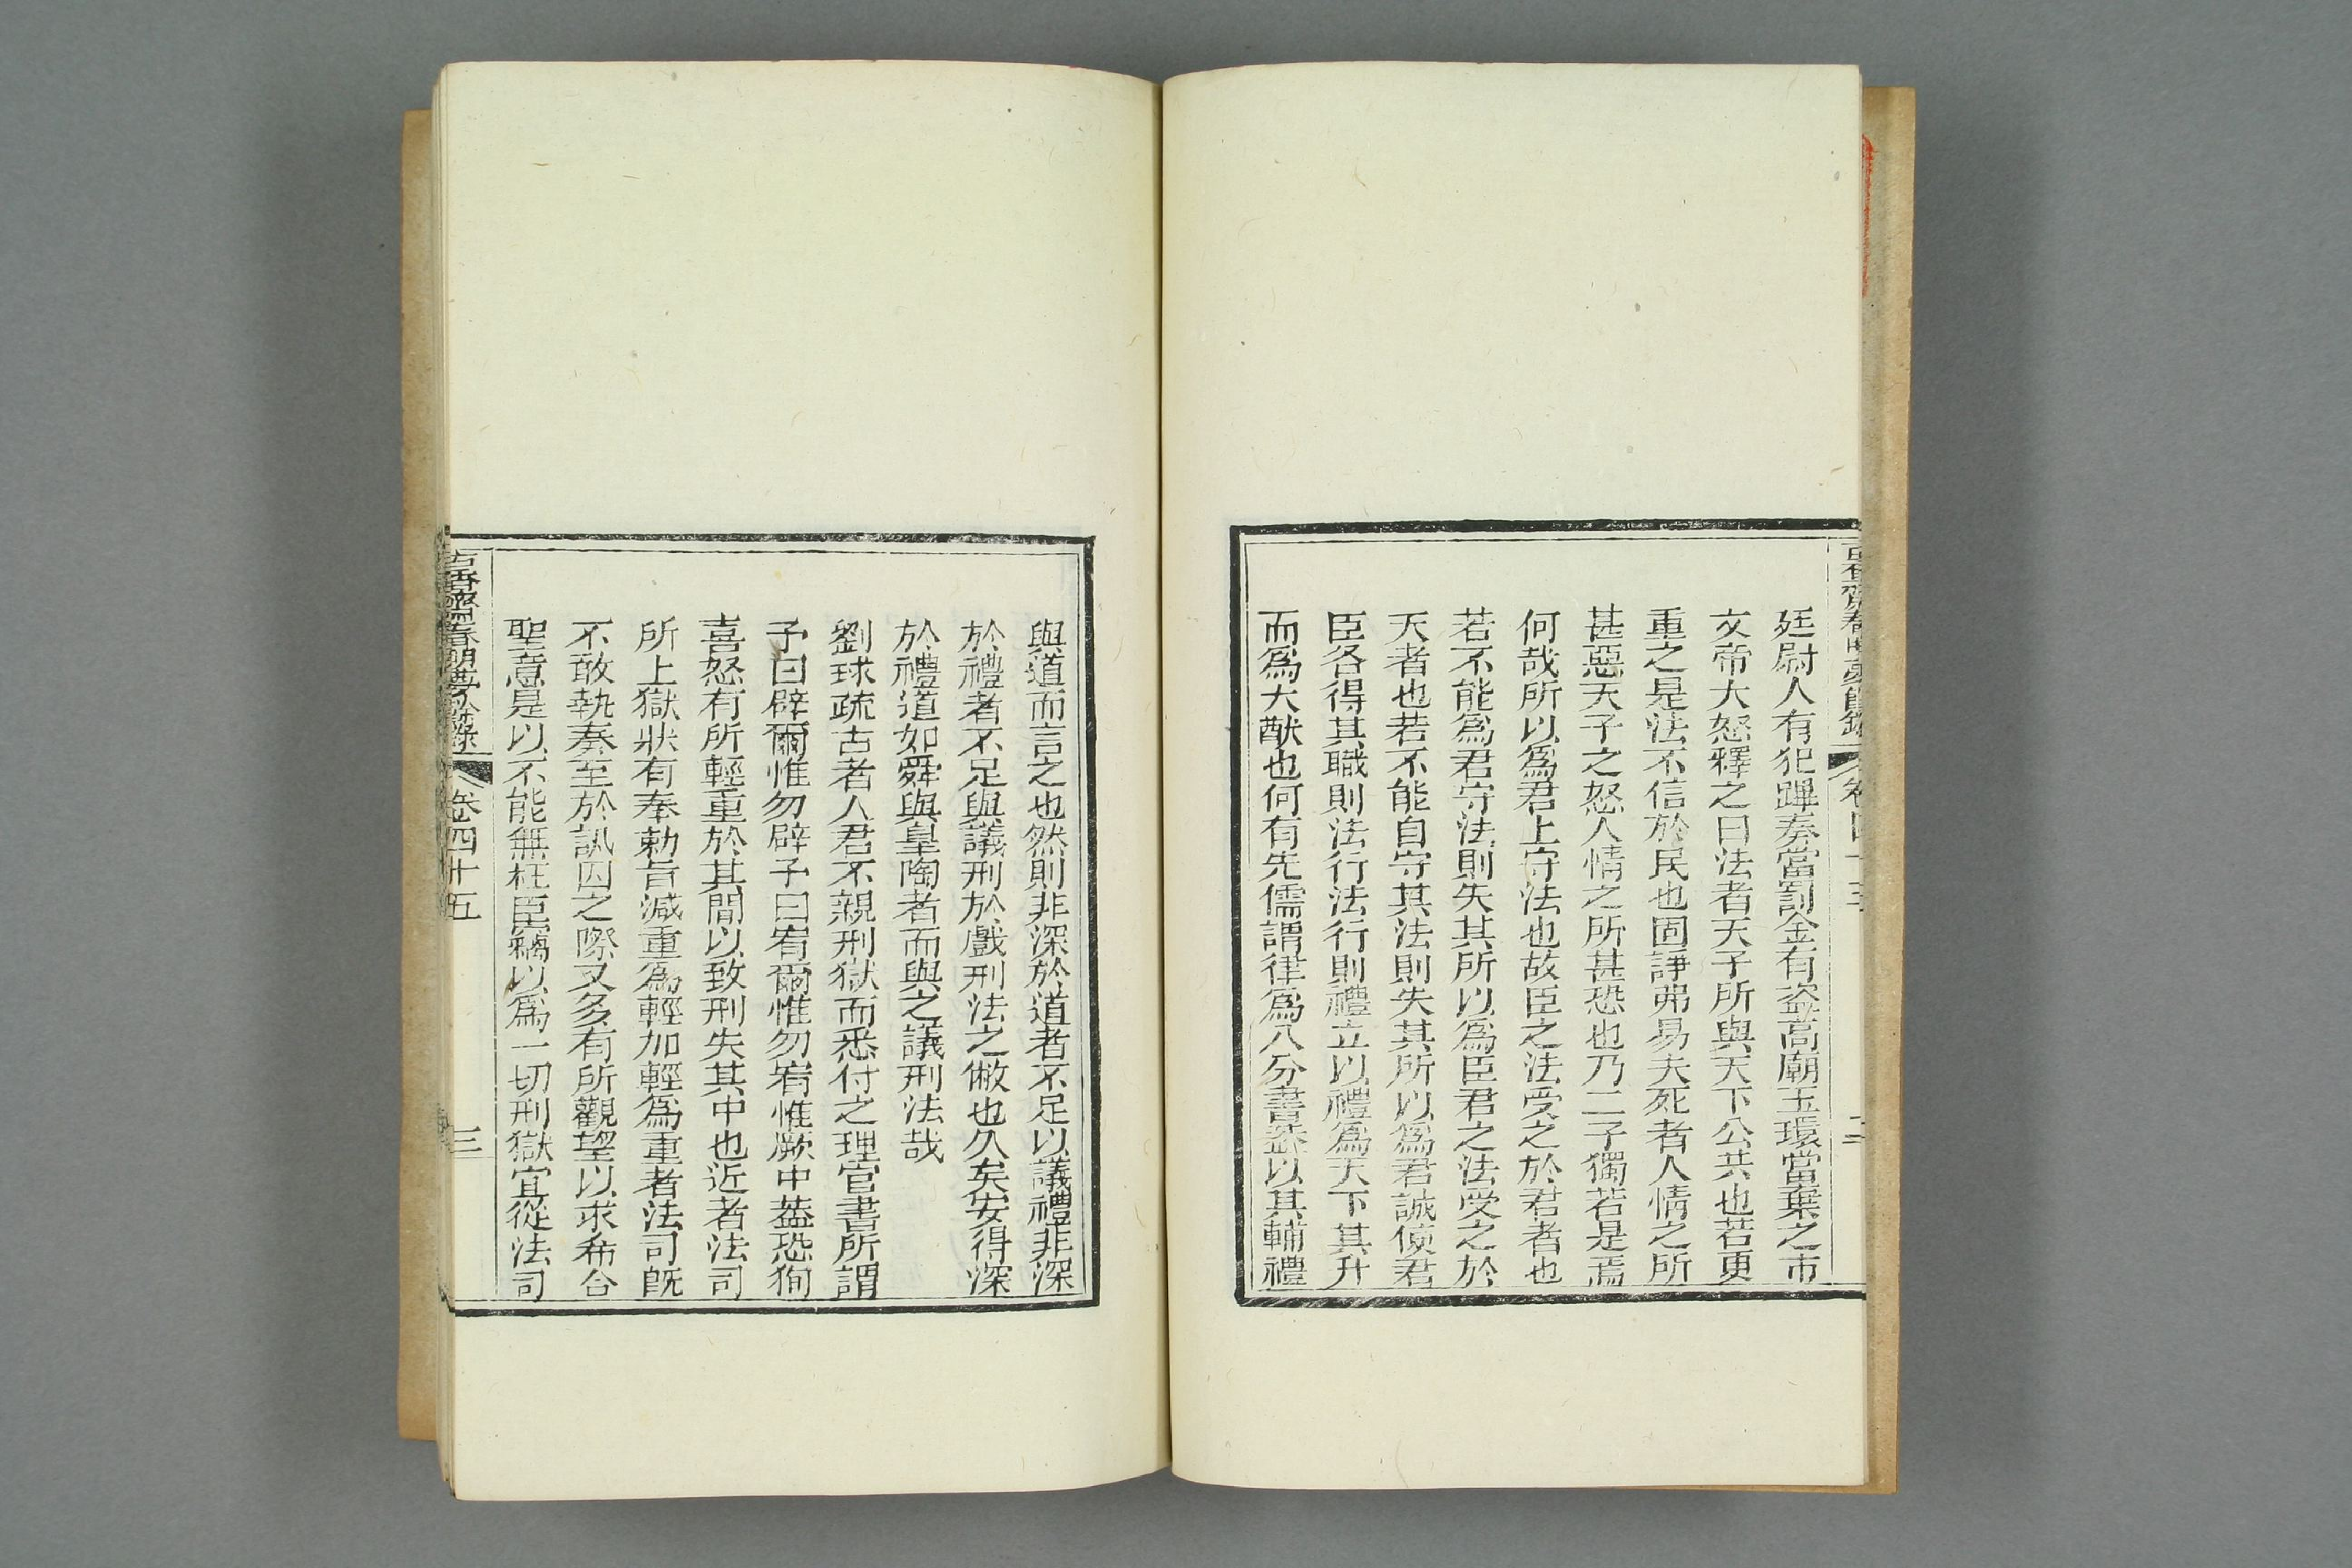 廷尉人有犯蹕奏當罰金有盗高廟玉環當棄之市
文帝大怒釋之曰法者天子所與天下公共也若更
重之是法不信於民也固諍弗易夫死者人情之所
甚惡天子之怒人情之所甚恐也乃二子獨若是焉
何哉所以為君上守法也故臣之法受之於君者也
若不能為君守法則失其所以為臣君之法受之於
天者也若不能自守其法則失其所以為君誠使君
臣各得其職則法行法行則禮立以禮為天下其升
而為大猷也何有先儒謂律為八分書葢以其輔禮
與道而言之也然則非深於道者不足以議禮非深
於禮者不足與議刑於戲刑法之敝也久矣安得深
於禮道如舜與皐陶者而與之議刑法哉
劉球疏古者人君不親刑獄而悉付之理官書所謂
予曰辟爾惟勿辟予曰宥爾惟勿宥惟厥中葢恐狥
喜怒有所輕重於其間以致刑失其中也近者法司
所上獄狀有奉勅旨減重為輕加輕為重者法司旣
不敢執奏至於訊囚之際又多有所觀望以求希合
聖意是以不能無枉臣竊以為一切刑獄宜從法司
古香齋春明夢餘錄 卷四十五 三